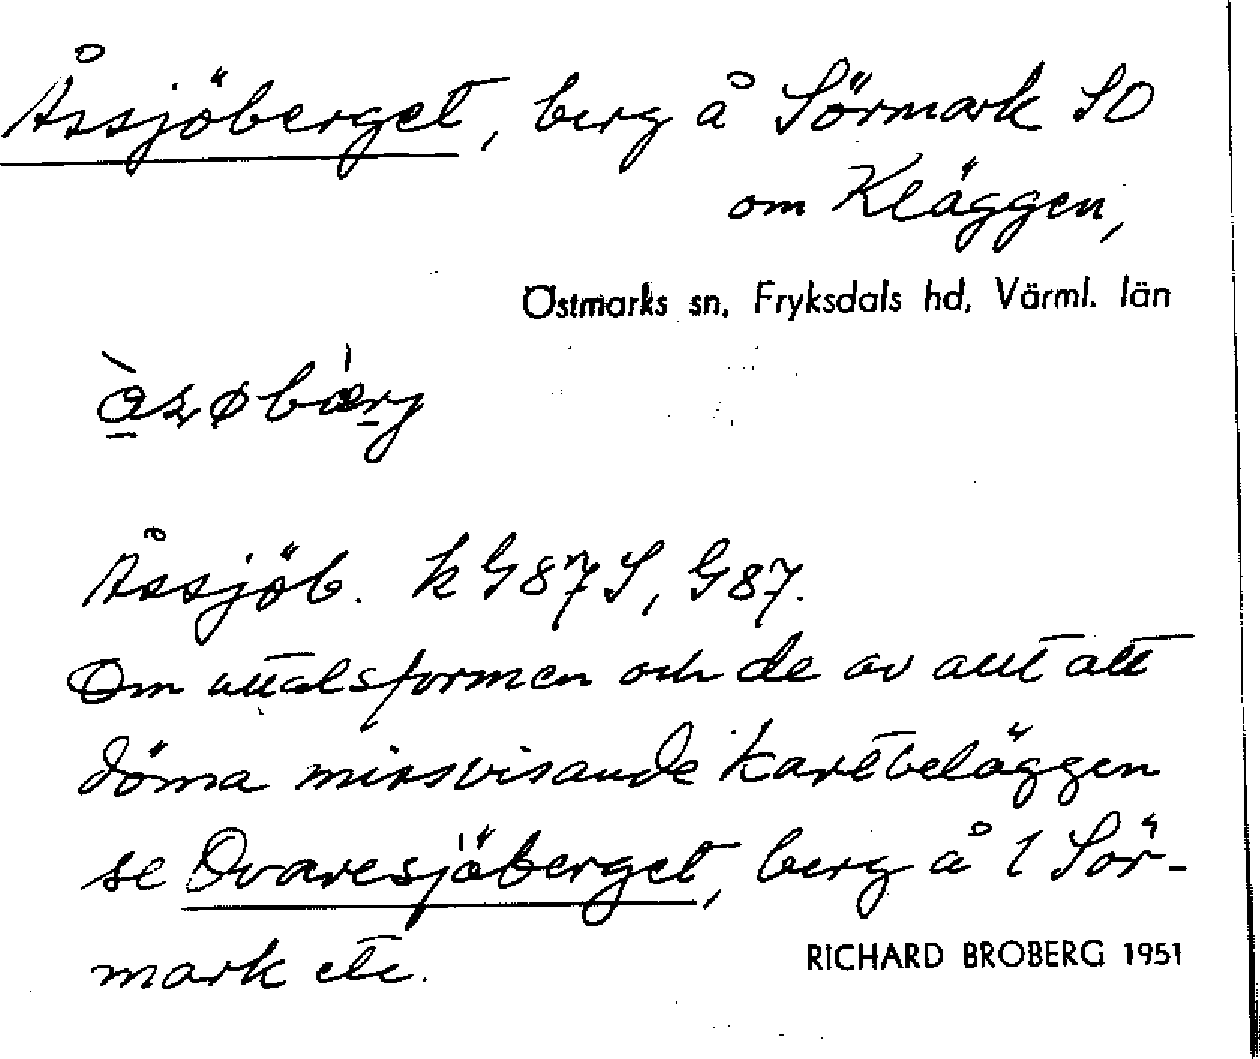 Åssjöberget, berg å Sörmark SO
om Kläggen,
Östmarks sn, Fryksdals hd, Värml. län
Åssjöb. k G87S, G87.
Om uttalsformen och de av allt att
döma missvisande kartbeläggen
se Ovaresjöberget, berg å 1 Sör-
mark etc.
RICHARD BROBERG 1951